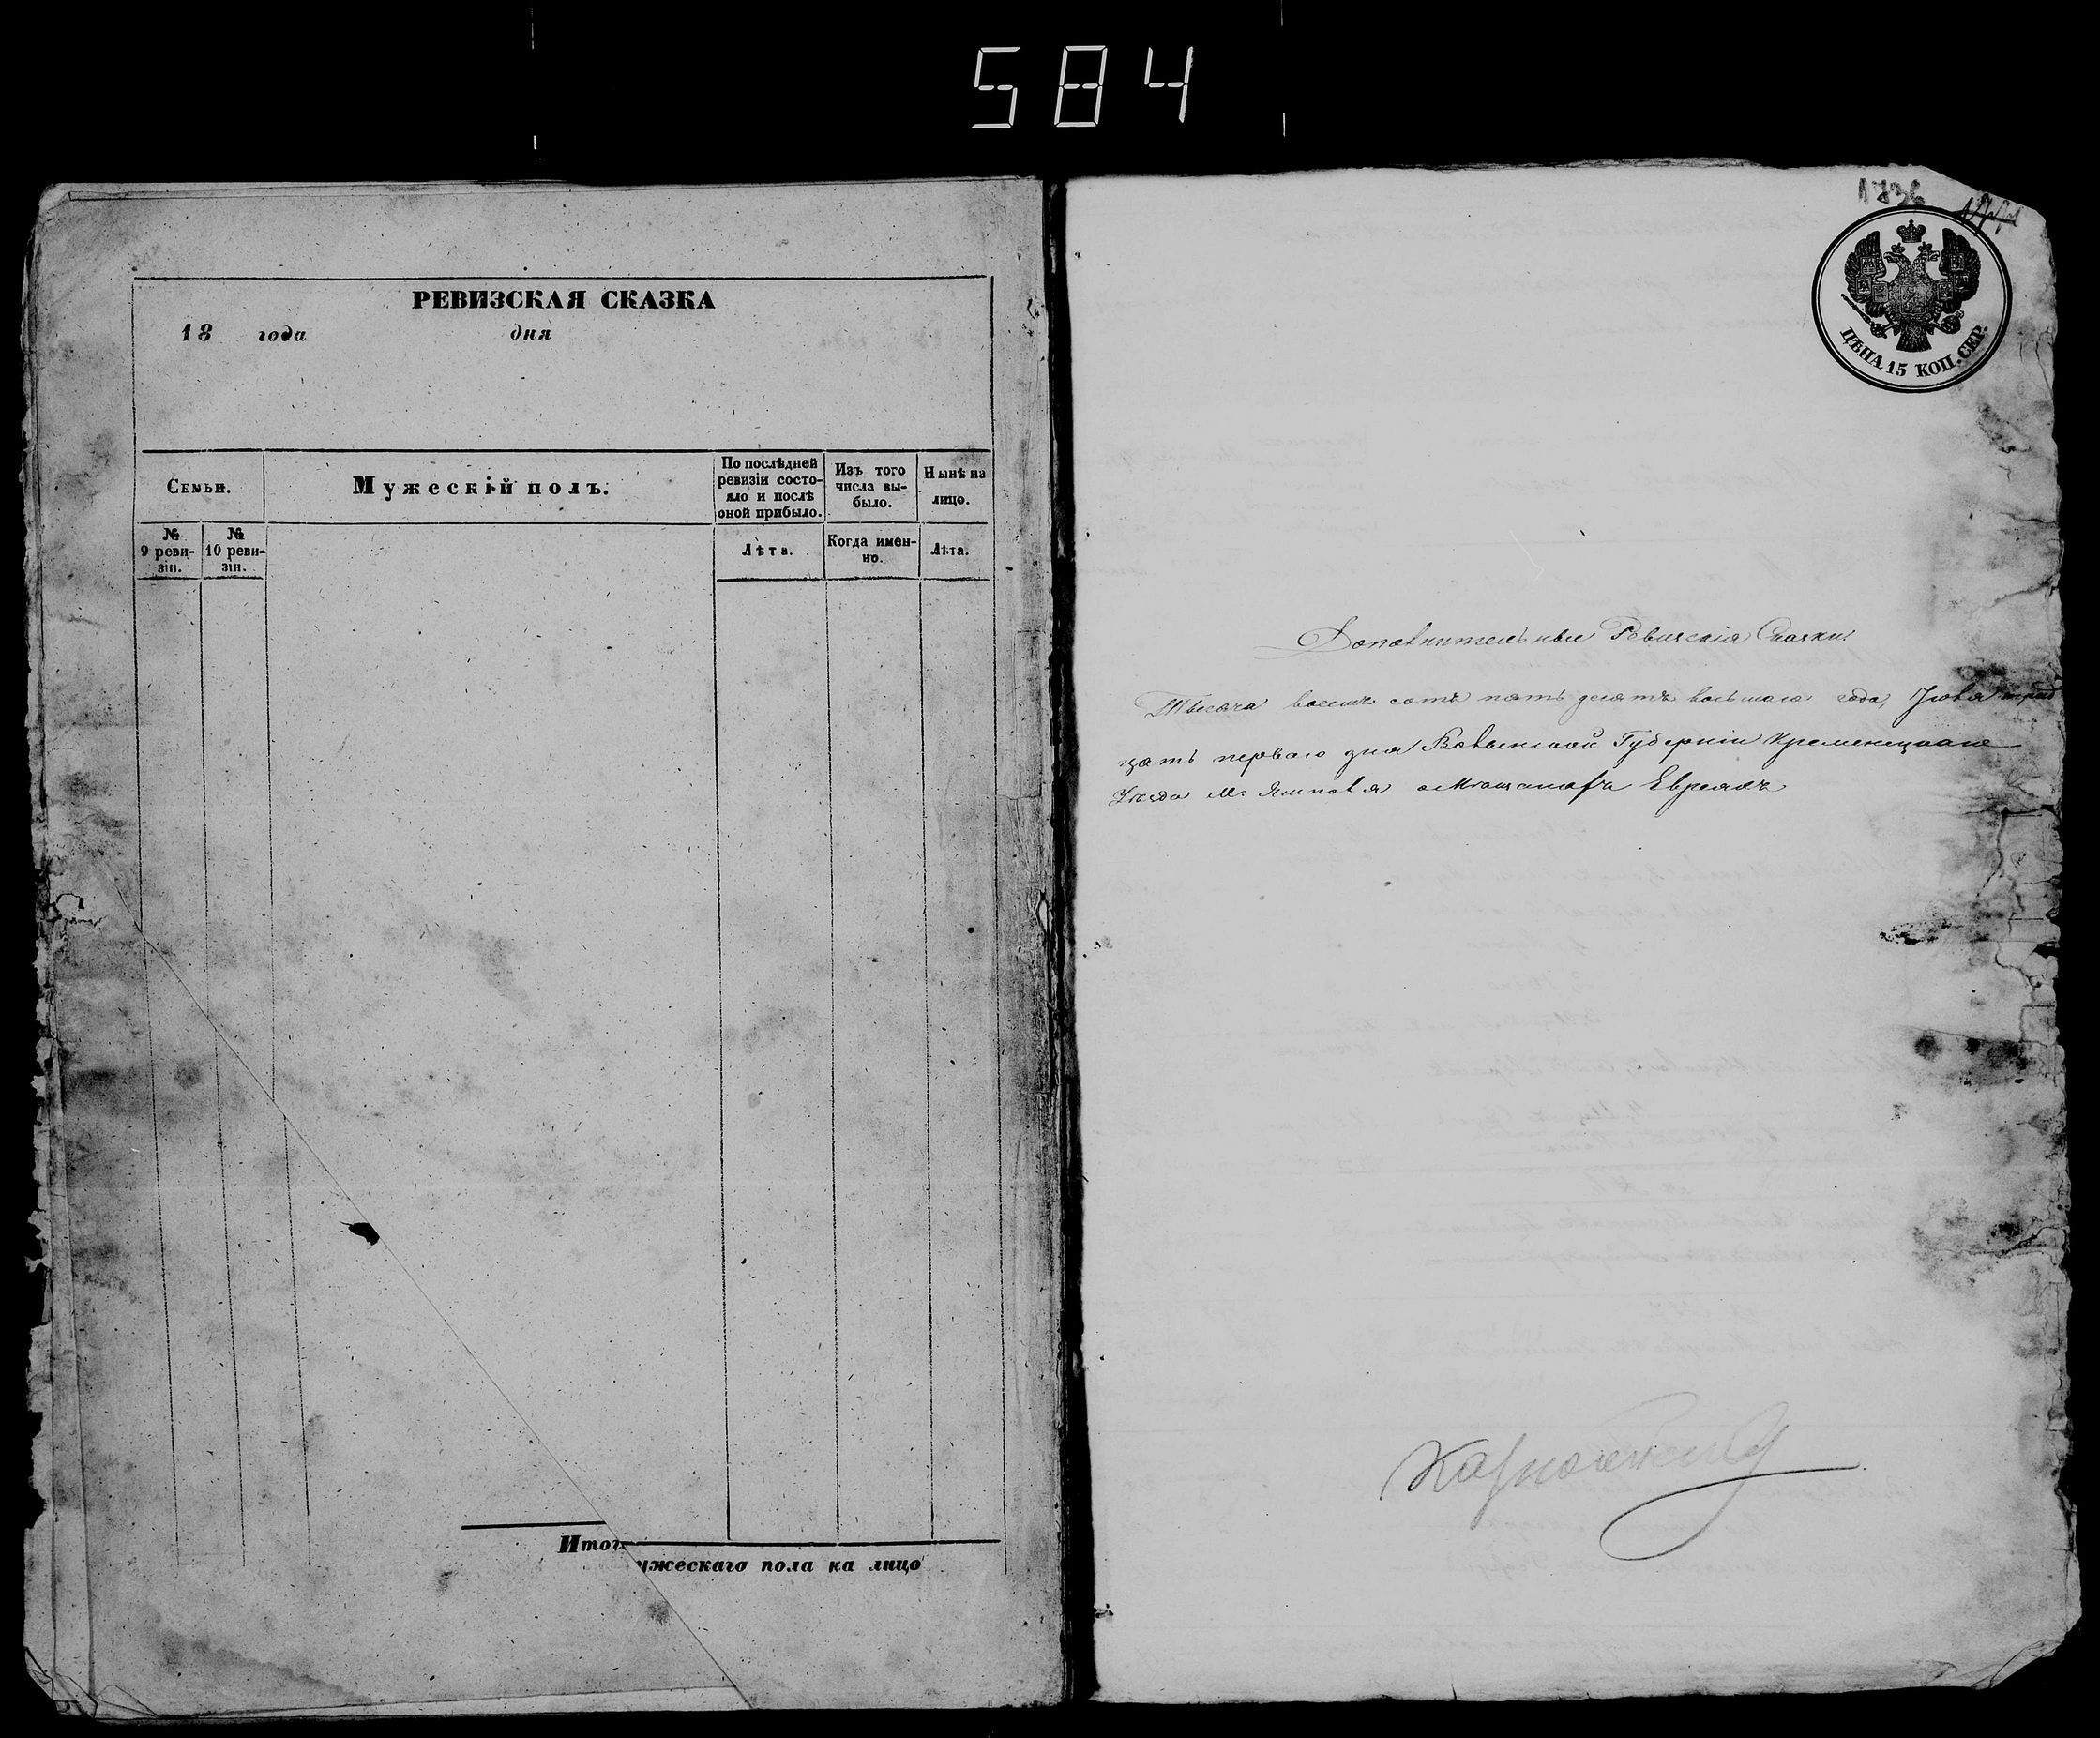 584
РЕВИЗСКАЯ СКАЗКА
18 года дня
Семьи.
Мужескій полъ.
По послѣдней ревизіи состо-
яло и послѣ
оной прибыло.
Изъ того
числа вы-
было.
Нынѣ на
лицо.
№
9 реви-
зіи.
№
10 реви-
зіи.
Лѣта.
Когда имен-
но.
Лѣта.
Итог
ужескаго пола на лицо
1736
ЦѢНА 15 КОП. СЕР.
Дополнительные Ревизскія Сказки
Тысяча восемь сотъ пятьдесятъ восьмаго года, Іюля трид
цать перваго дня Волынской Губерніи Кременецкаго
Уѣзда М. Ямполя о Мѣщанахъ Евреяхъ